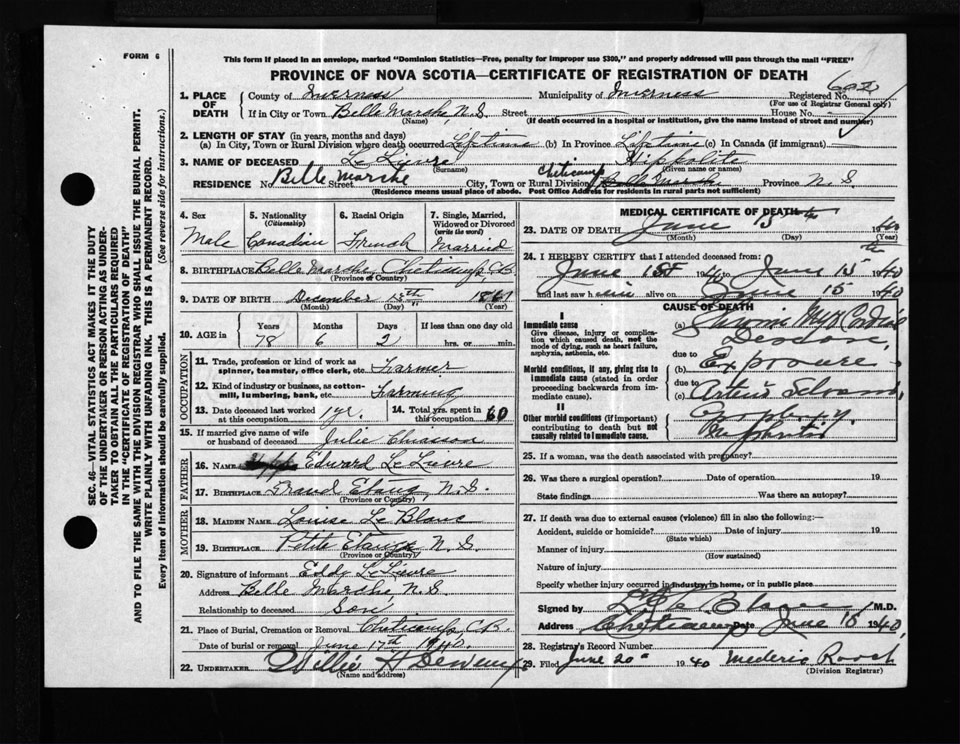 FORM 6
This form if placed in an envelope, marked "Dominion Statistics—Free, penalty for improper use $300," and properly addressed will pass through the mail "FREE"
PROVINCE OF NOVA SCOTIA—CERTIFICATE OF REGISTRATION OF DEATH
SEC. 46—VITAL STATISTICS ACT MAKES IT THE DUTY
OF THE UNDERTAKER OR PERSON ACTING AS UNDER-
TAKER TO OBTAIN ALL THE PARTICULARS REQUIRED
IN THE "CERTIFICATE OF REGISTRATION OF DEATH"
AND TO FILE THE SAME WITH THE DIVISION REGISTRAR WHO SHALL ISSUE THE BURIAL PERMIT.
WRITE PLAINLY WITH UNFADING INK. THIS IS A PERMANENT RECORD.
Every item of information should be carefully supplied. (See reverse side for instructions.)
1. PLACE OF DEATH
County of Inverness Municipality of Inverness Registered No.
(For use of Registrar General only)
If in City or Town Belle Marshe, N.S. Street House No.
(Name) (If death occurred in a hospital or institution, give the name instead of street and number)
2. LENGTH OF STAY (in years, months and days)
(a) In City, Town or Rural Division where death occurred Lifetime (b) In Province Lifetime (c) In Canada (if immigrant)
3. NAME OF DECEASED Le Lievre Hippolite
(Surname) (Given name or names)
RESIDENCE No. Belle Marshe Street City, Town or Rural Division Cheticamp Belle Marshe Province N.S.
(Residence means usual place of abode. Post Office Address for residents in rural parts not sufficient)
4. Sex
Male
5. Nationality
(Citizenship)
Canadian
6. Racial Origin
French
7. Single, Married,
Widowed or Divorced
(write the word)
Married
8. BIRTHPLACE Belle Marshe, Cheticamp C.B.
(Province or Country)
9. DATE OF BIRTH December 13th 1861
(Month) (Day) (Year)
10. AGE in
Years Months Days If less than one day old
78 6 2 hrs. or min.
OCCUPATION
11. Trade, profession or kind of work as
spinner, teamster, office clerk, etc. Farmer
12. Kind of industry or business, as cotton-
mill, lumbering, bank, etc. Farming
13. Date deceased last worked
at this occupation 1 yr.
14. Total yrs. spent in
this occupation 60
15. If married give name of wife
or husband of deceased Julie Chiasson
FATHER
16. NAME Edward Le Lievre
17. BIRTHPLACE Grand Etang, N.S.
(Province or Country)
MOTHER
18. MAIDEN NAME Louise Le Blanc
19. BIRTHPLACE Petite Etang N.S.
(Province or Country)
20. Signature of informant Eddy Le Lievre
Address Belle Marshe, N.S.
Relationship to deceased Son
21. Place of Burial, Cremation or Removal Cheticamp, C.B.
Date of burial or removal June 17th 1940.
22. UNDERTAKER Willie H
(Name and address)
MEDICAL CERTIFICATE OF DEATH
23. DATE OF DEATH June 15th 1940
(Month) (Day) (Year)
24. I HEREBY CERTIFY that I attended deceased from:
June 1st 1940 to June 15th 1940
and last saw him alive on June 15 1940
CAUSE OF DEATH
I
Immediate cause
Give disease, injury or complica-
tion which caused death, not the
mode of dying, such as heart failure,
asphyxia, asthenia, etc.
(a) Chronic
due to
Morbid conditions, if any, giving rise to
immediate cause (stated in order
proceeding backwards from im-
mediate cause).
(b) Exposure
due to
(c)
II
Other morbid conditions (if important)
contributing to death but not
causally related to immediate cause.
25. If a woman, was the death associated with pregnancy?
26. Was there a surgical operation? Date of operation 19
State findings Was there an autopsy?
27. If death was due to external causes (violence) fill in also the following:—
Accident, suicide or homicide? Date of injury 19
(State which)
Manner of injury
(How sustained)
Nature of injury
Specify whether injury occurred in industry, in home, or in public place
Signed by M.D.
Address Cheticamp Date June 15 1940.
28. Registrar's Record Number
29. Filed June 20th 1940 Mederic Roach
(Division Registrar)